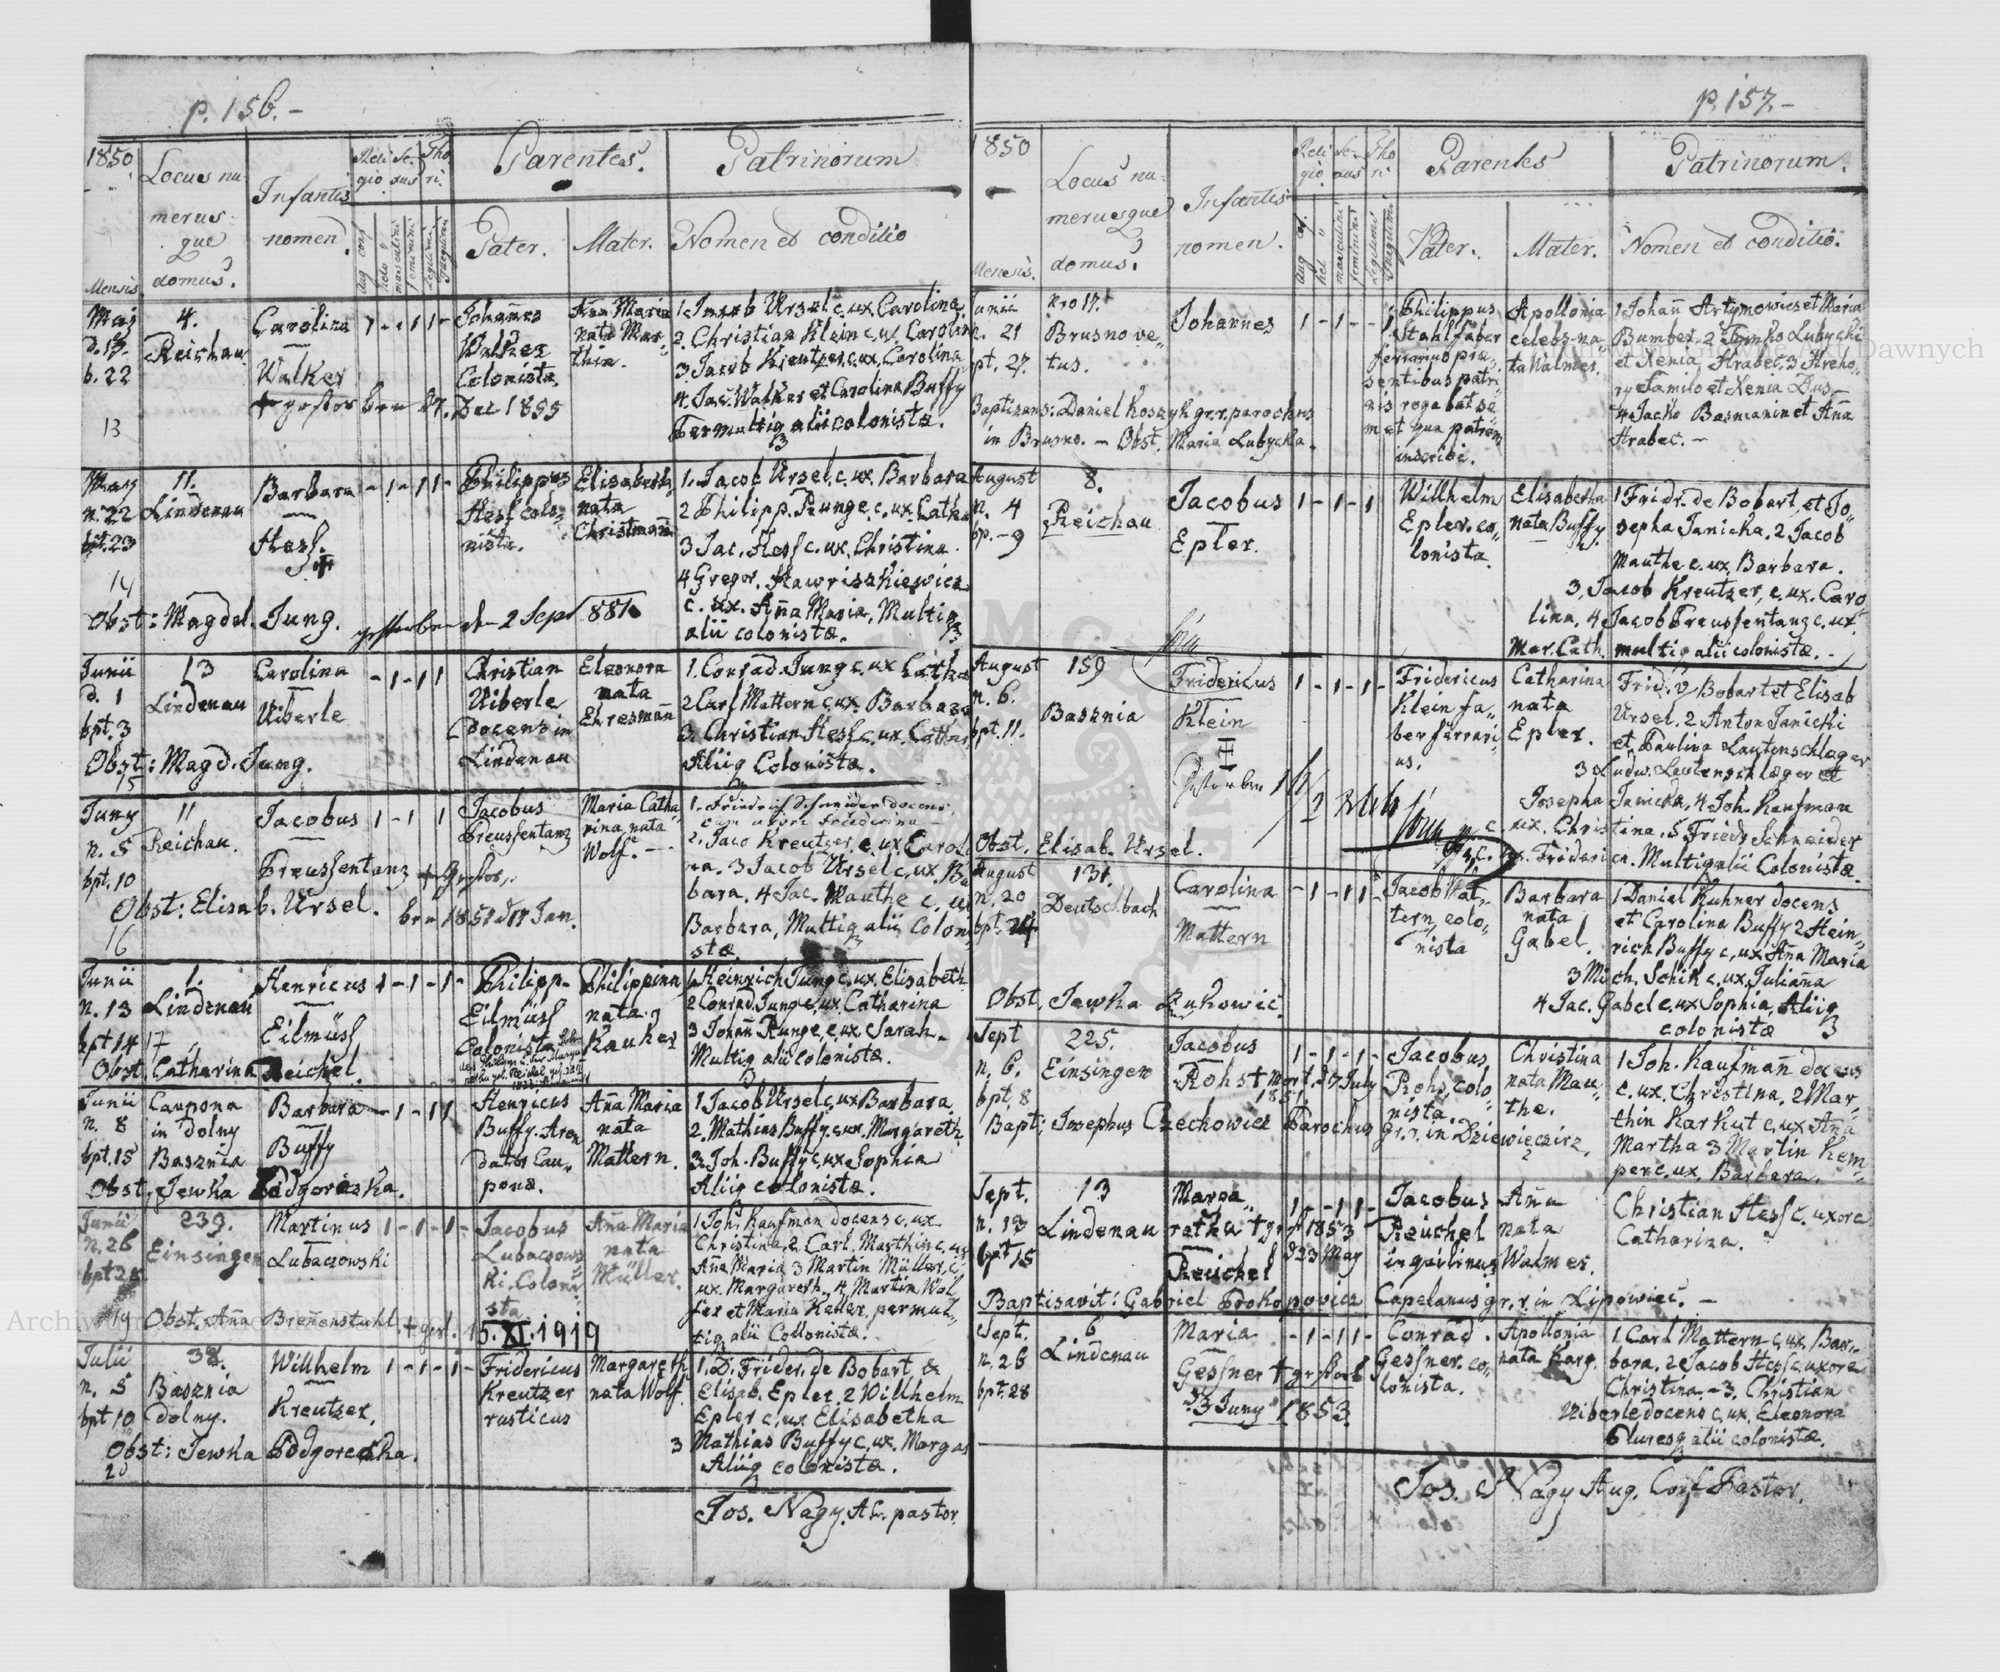 p. 156.-
1850
Locus nu-
merus-
que
domus.
Infantis
nomen.
Reli
gio
Se-
xus
Tho
ri.
Parentes.
Patrinorum
Mensis
Pater.
Mater.
Nomen et conditio
Maj
d. 17.
b. 22
13
4.
Reichau
Carolina
Walker
Johannes
Walker
Colonista.
Aña Maria
nata Mar-
thin.
1. Jacob Ursel c. ux. Carolina
2. Christian Klein c. ux. Carolin
3. Jacob Kreutzer, c. ux. Carolina
4. Jac. Walker et Carolina Buffy
Permultiq alii colonistæ.
May
n. 22
bpt. 23
14
11.
Lindenau
Barbara
Hess.
Philippus
Hess colo-
nista.
Elisabeth
nata
Christmañ
1. Jacob Ursel, c. ux. Barbara
2 Philipp. Runge. c. ux. Catha
3 Jac. Hess c. ux. Christina.
4 Gregor. Hawriszkiewicz
c. ux. Aña Maria, Multiq
alii colonistæ.
Obst: Magdal. Jung.
gestorben den 2 Sept 1881
Junii
d. 1
bpt. 3
15
13
Lindenau
Carolina
Uiberle
Christian
Uiberle
docens in
Lindenau
Eleonora
nata
Ehresmañ
1. Conrad Jung c. ux Catha
2 Carl Mattern c. ux. Barbara
3. Christian Hess c. ux. Catha
Aliiq Colonistæ.
Obst: Magd. Jung.
Juny
n. 5
bpt. 10
16
11
Reichau.
Jacobus
Preussentanz
Jacobus
Preussentanz
Maria Catha
rina nata
Wolf.
1. Friedrich Schneider docens
cum uxore Friderina
2. Jaco Kreutzer, c. ux Caroli
na. 3 Jacob Ursel c. ux. Ba
bara. 4 Jac. Mauthe c. ux
Barbara, Multiq alii Coloni
stæ
Obst: Elisab. Ursel.
Junii
n. 13
bpt 14
17
1.
Lindenau
Henricus
Eilmüss
Philipp-
Eilmüss
Colonista
Philippina
nata
Kauker
1. Heinrich Jung c. ux. Elisabeth
2 Conrad Jung c. ux Catharina
3 Johañ Runge, c. ux. Sarah
Multiq alii colonistæ.
Obst. Catharina Reichel.
Junii
n. 8
bpt. 15
Caupona
in dolny
Basznia
Barbara
Buffy
Henricus
Buffy. Aren
dator Cau-
ponæ.
Aña Maria
nata
Mattern.
1 Jacob Ursel c. ux Barbara
2. Mathias Buffy c. ux. Margareth.
3. Joh. Buffy c. ux Sophia
Aliiq colonistæ.
Obst. Jewka Podgorezka.
Junii
n. 26
19
239.
Einsingen
Martinus
Lubaczowski
Jacobus
Lubaczows
ki. Coloni
sta
Aña Maria
nata
Müller.
1 Joh. Kaufman docens c. ux
Christina, 2 Carl. Marthin c. ux
Aña Maria 3 Martin Müller, c.
ux. Margareth. 4 Martin Wol
fer et Maria Keller, permul-
tiq alii Collonistæ.
Obst. Aña Breñenstuhl. † gest. 15. XI. 1919
Julii
n. 5
bpt 10
20
38.
Basznia
dolny.
Willhelm
Kreutzer.
Fridericus
Kreutzer
rusticus
Margareth
nata Wolf
1. D. Frider. de Bobart &
Elisab. Epler. 2 Willhelm
Epler c. ux Elisabetha
3 Mathias Buffy c. ux. Marga
Aliiq colonistæ.
Obst: Jewka Podgorecka.
Jos. Nagy. A. C. pastor
p. 157.-
1850
Mensis.
Locus nu-
merusque
domus.
Infantis
nomen.
Reli
gio
Se-
xus
Tho
ri
Parentes
Patrinorum.
Pater.
Mater.
Nomen et conditio.
Junii
n. 21
bpt. 27.
Nro 17.
Brusno ve-
tus.
Johañes
Philippus
Stahl faber
ferrarius præ-
sentibus patri-
nis rogabat se
met qua patrem
inscribi.
Apollonia
celebs na-
ta Walmer.
1 Johañ Artymowicz et Maria
Bumber. 2 Tymko Lubycki
et Xenia Hrabec. 3 Hreho-
ry Tamilo et Xenia Dus-
4 Jacko Basmanin et Aña
Hrabec. -
Baptizans: Daniel Koszyk gr. r. parochus
in Brusno. - Obst. Maria Lubycka.
August
n. 4
bp. - 9
8.
Reichau
Jacobus
Epler.
Willhelm
Epler. co-
lonista
Elisabetha
nata Buffy.
1 Fridr. de Bobart, et Jo-
sepha Janicka. 2 Jacob
Mauthe c. ux. Barbara.
3. Jacob Kreutzer, c. ux. Caro
lina. 4 Jacob Preussentanz c. ux.
Mar. Cath. multiq alii colonistæ. -
August
n. 6.
bpt. 11.
159
Basznia
Fridericus
Klein
Fridericus
Klein fa-
ber ferrari-
us.
Catharina
nata
Epler.
Frid. v Bobart et Elisab
Ursel. 2 Anton Janicki
et Paulina Lautenschlager
3 Ludw. Leutenschlæger et
Josepha Janicka, 4 Joh. Kaufman
c. ux. Christina. 5 Friedr Schneider
c. ux. Friderica. Multiq alii Colonistæ.
Obst. Elisab. Ursel.
August
n. 20
bpt. 24
131.
Deutschbach
Carolina
Mattern
Jacob Mat-
tern, colo-
nista
Barbara
nata
Gabel.
1 Daniel Kuhner docens
et Carolina Buffy 2 Hein-
rich Buffy c. ux Aña Maria
3 Mich. Schik c. ux. Juliaña
4 Jac. Gabel c. ux Sophia, Aliiq
colonistæ
Obst. Jewka Lukowic.
Sept
n. 6.
bpt. 8
225.
Einsingen
Jacobus
Rohs † Mort. 27 July
1851.
Jacobus
Rohs, colo-
nista.
Christina
nata Mau-
the.
1 Joh. Kaufmañ docens
c. ux. Christina. 2 Mar-
thin Karkut c. ux Aña
Martha 3 Martin Kem-
per c. ux. Barbara.
Bapt: Josephus Czechowicz Parochus gr. r. in Dziewięcierz.
Sept.
n. 13
bpt 15
13
Lindenau
Marga-
retha † gest 1853
d 23 May
Reichel
Jacobus
Reichel
inquilinus
Aña
nata
Walmer.
Christian Hess c. uxore
Catharina.
Baptisavit: Gabriel Prokopowicz Capelanus gr. r. in Lipowiec. -
Sept.
n. 26
bpt. 28
6
Lindenau
Maria
Gessner † gestorb
3 Juny 1853.
Conrad.
Gessner. co-
lonista.
Apollonia
nata Karg.
1. Carl Mattern c. ux. Bar-
bara. 2 Jacob Hess c. uxore
Christina. - 3. Christian
Uiberle docens c. ux. Eleonora
Pluresq alii colonistæ.
Jos. Nagy Aug. Conf. Pastor.